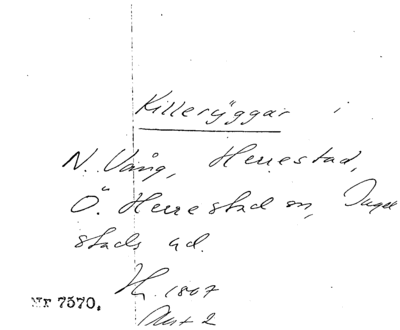 Killeryggar i
N. Vång, Herrestad,
Ö. Herrestad sn, Ingel
stads hd.
1807
Akt 2
Nr 7570.